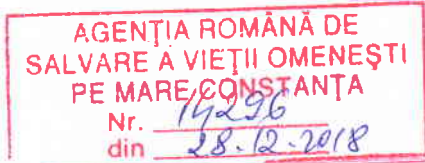 AGENȚIA ROMÂNĂ DE
SALVARE A VIEȚII OMENEȘTI
PE MARE CONSTANȚA
Nr. 14296
din 28.12.2018